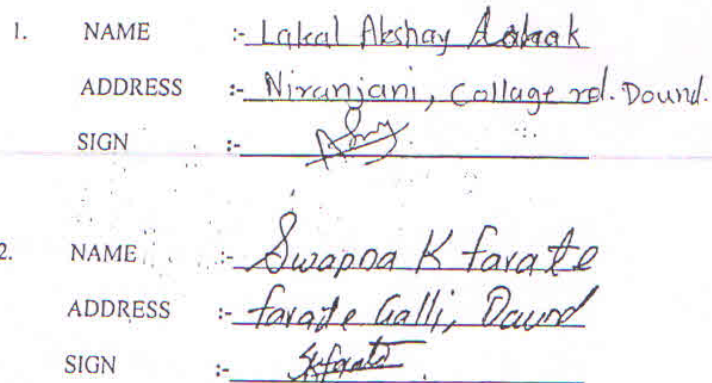 1. NAME :- Lakal Akshay Ashok
ADDRESS :- Niranjani, Collage rd. Dound.
SIGN :-
2. NAME :- Swapna K farate
ADDRESS :- farate Galli, Daund
SIGN :- Skfarate